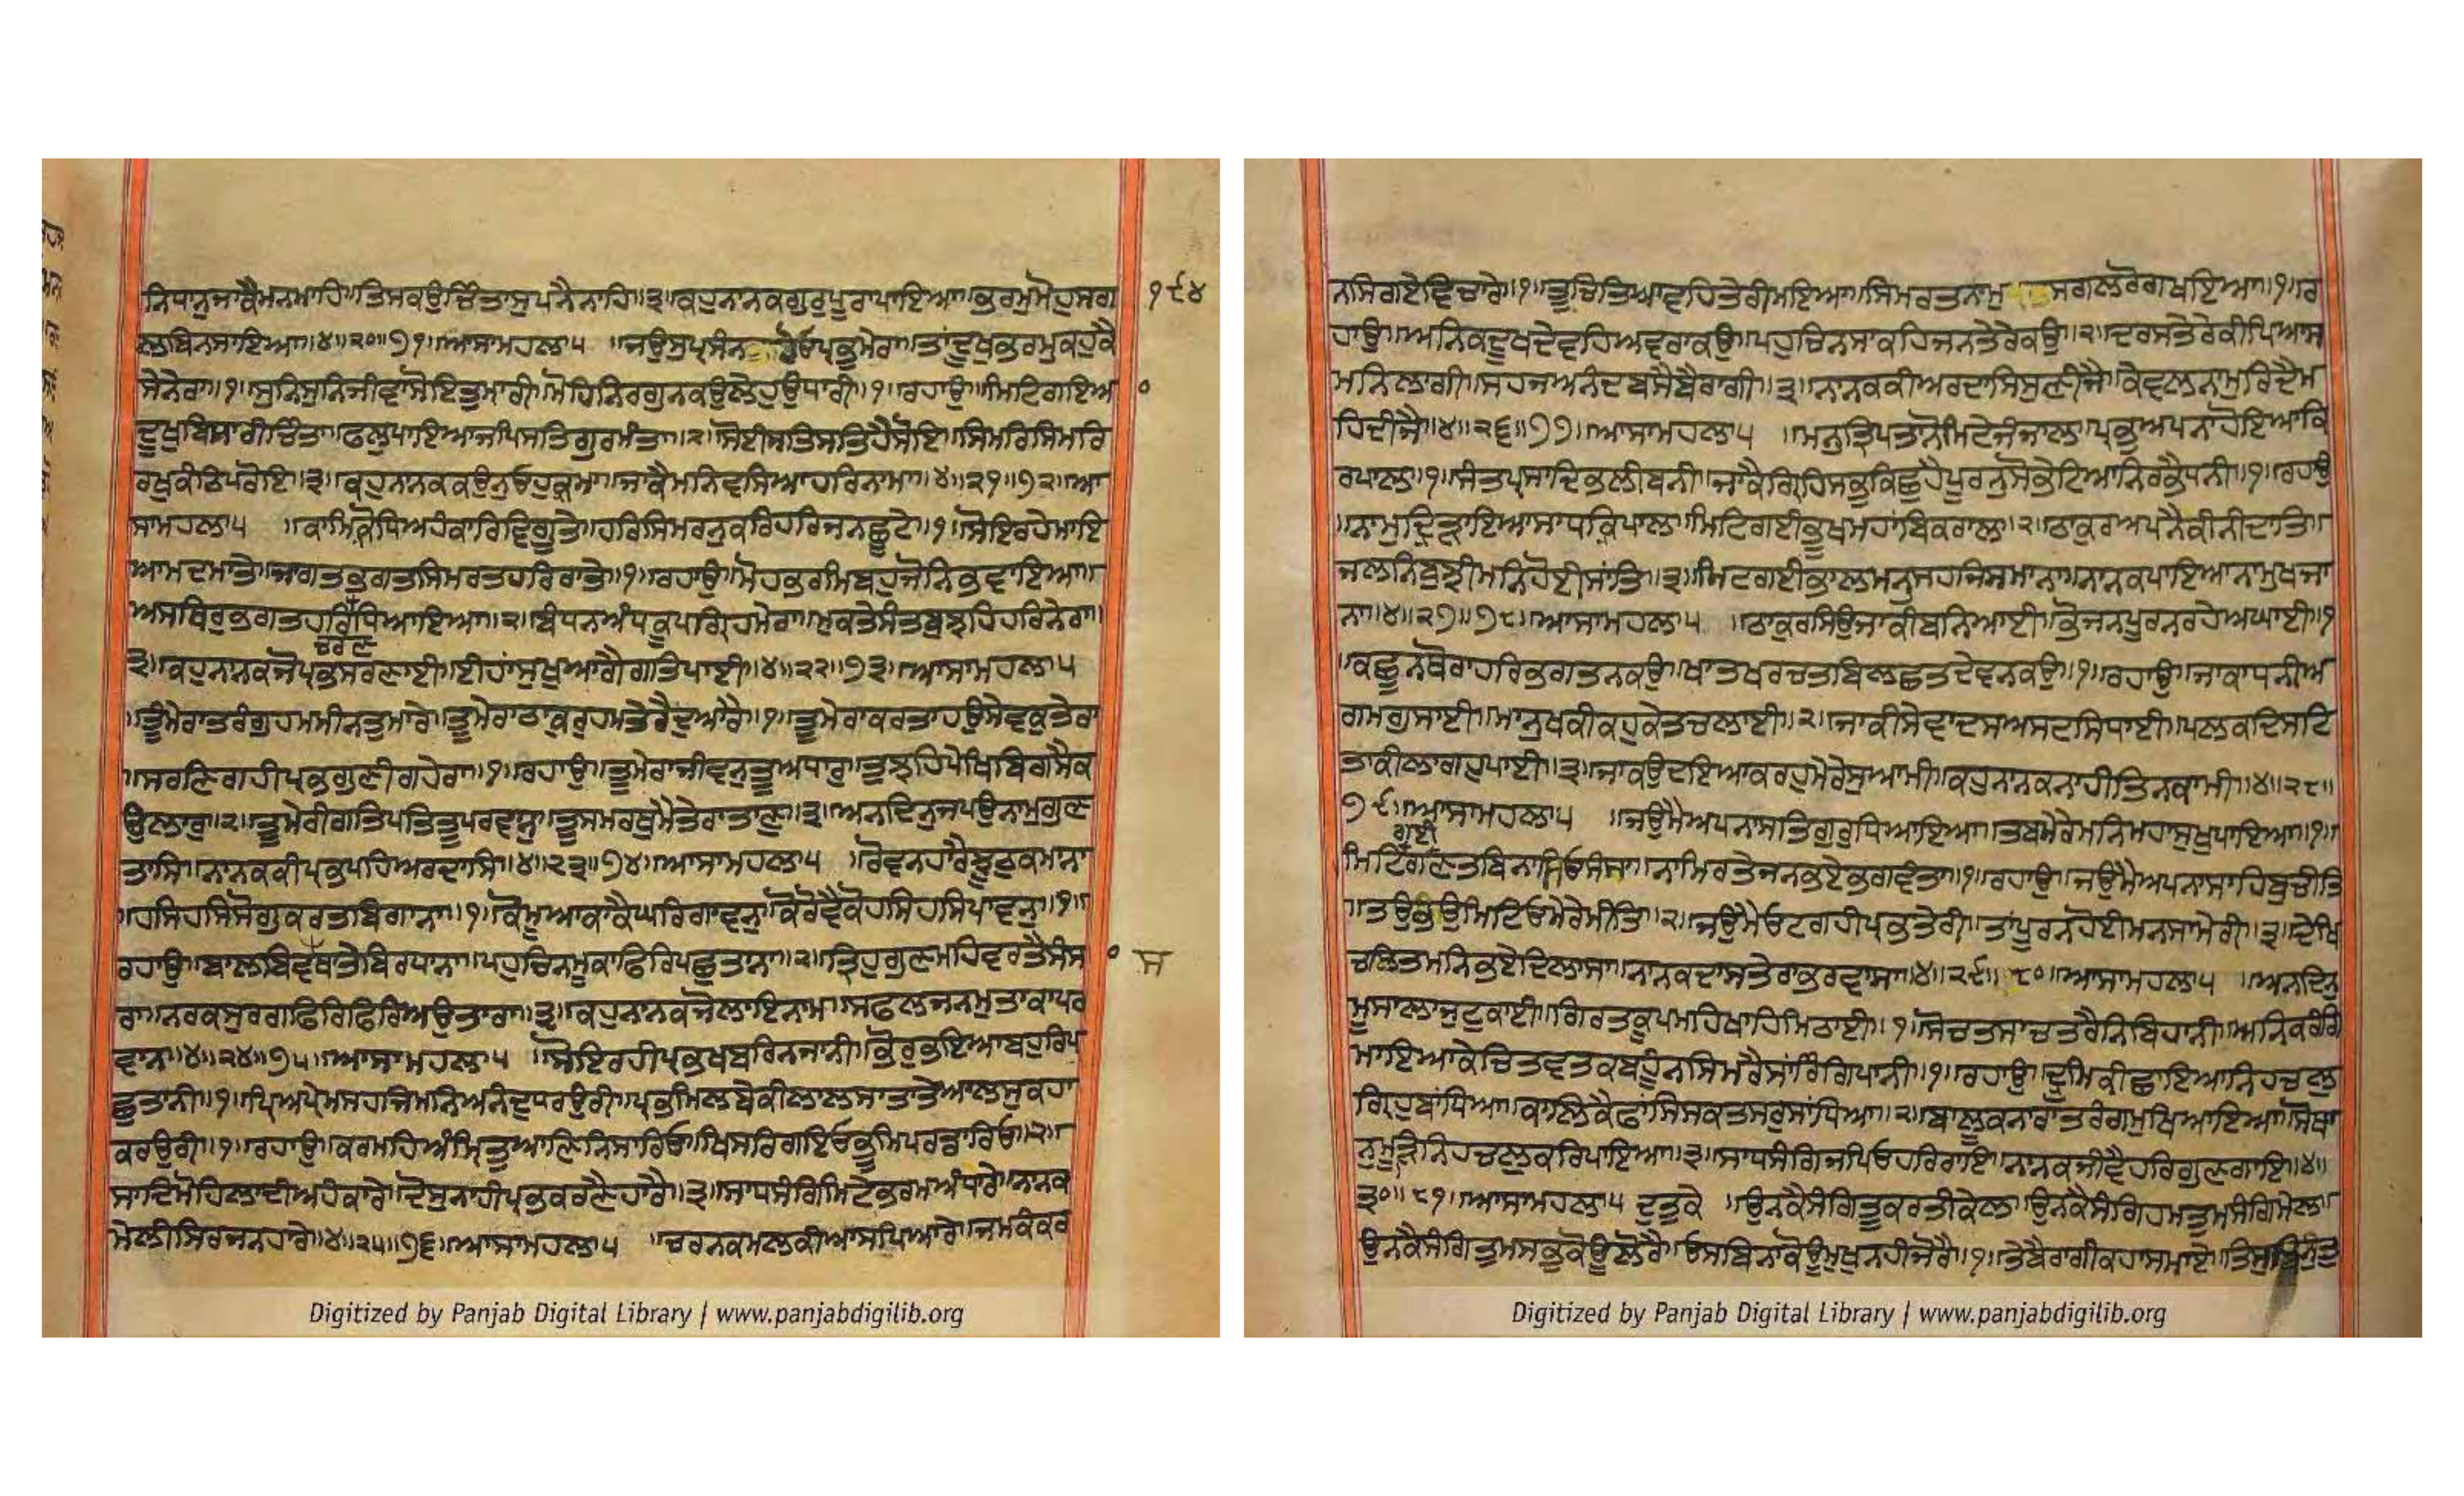 ਨਿਧਾਨੁਜਾਕੈਮਨਮਾਹਿ॥ਤਿਸਕਉਚਿੰਤਾਸੁਪਨੈਨਾਹਿ॥੩॥ਕਹੁਨਾਨਕਗੁਰੁਪੂਰਾਪਾਇਆ॥ਭਰਮੁਮੋਹੁਸਗ
੧੯੪
ਲਬਿਨਸਾਇਆ॥੪॥੨੦॥੭੧॥ਆਸਾਮਹਲਾ੫ ॥ਜਉਸੁਪ੍ਰਸੰਨ ਹੋਇਓਪ੍ਰਭੁਮੇਰਾ॥ਤਾਂਦੂਖੁਭਰਮੁਕਹੁਕੈ
ਸੇਨੇਰਾ॥੧॥ਸੁਨਿਸੁਨਿਜੀਵਾਸੋਇਤੁਮਾਰੀ॥ਮੋਹਿਨਿਰਗੁਨਕਉਲੇਹੁਉਧਾਰੀ॥੧॥ਰਹਾਉ॥ਮਿਟਿਗਇਆ
ਦੂਖੁਬਿਸਾਰੀਚਿੰਤਾ॥ਫਲੁਪਾਇਆਜਪਿਸਤਿਗੁਰਮੰਤਾ॥੨॥ਸੋਈਸਤਿਸਤਿਹੈਸੋਇ॥ਸਿਮਰਿਸਿਮਰਿ
ਰਖੁਕੰਠਿਪਰੋਇ॥੩॥ਕਹੁਨਾਨਕਕਉਨੁਓਹੁਕਰਮਾ॥ਜਾਕੈਮਨਿਵਸਿਆਹਰਿਨਾਮਾ॥੪॥੨੧॥੭੨॥ਆ
ਸਾਮਹਲਾ੫ ॥ਕਾਮਿਕ੍ਰੋਧਿਅਹੰਕਾਰਿਵਿਗੂਤੇ॥ਹਰਿਸਿਮਰਨੁਕਰਿਹਰਿਜਨਛੂਟੇ॥੧॥ਸੋਇਰਹੇਮਾਇ
ਆਮਦਮਾਤੇ॥ਜਾਗਤਭਗਤਸਿਮਰਤਹਰਿਰਾਤੇ॥੧॥ਰਹਾਉ॥ਮੋਹਭਰਮਿਬਹੁਜੋਨਿਭਵਾਇਆ॥
ਅਸਥਿਰੁਭਗਤਹਰਿਧਿਆਇਆ॥੨॥ਬੰਧਨਅੰਧਕੂਪਗ੍ਰਿਹਮੇਰਾ॥ਮੁਕਤੇਸੰਤਬੁਝਹਿਹਰਿਨੇਰਾ॥
ਚਰਣ
੩॥ਕਹੁਨਾਨਕਜੋਪ੍ਰਭਸਰਣਾਈ॥ਈਹਾਂਸੁਖੁਆਗੈਗਤਿਪਾਈ॥੪॥੨੨॥੭੩॥ਆਸਾਮਹਲਾ੫
॥ਤੂੰਮੇਰਾਤਰੰਗੁਹਮਮੀਨਤੁਮਾਰੇ॥ਤੂਮੇਰਾਠਾਕੁਰੁਹਮਤੇਰੈਦੁਆਰੈ॥੧॥ਤੂਮੇਰਾਕਰਤਾਹਉਸੇਵਕੁਤੇਰਾ
॥ਸਰਣਿਗਹੀਪ੍ਰਭਗੁਣੀਗਹੇਰਾ॥੧॥ਰਹਾਉ॥ਤੂਮੇਰਾਜੀਵਨੁਤੂਆਧਾਰੁ॥ਤੁਝਹਿਪੇਖਿਬਿਗਸੈਕ
ਉਲਾਰੁ॥੨॥ਤੂਮੇਰੀਗਤਿਪਤਿਤੂਪਰਵਾਨੁ॥ਤੂਸਮਰਥੁਮੈਤੇਰਾਤਾਣੁ॥੩॥ਅਨਦਿਨੁਜਪਉਨਾਮੁਗੁਣ
ਤਾਸਿ॥ਨਾਨਕਕੀਪ੍ਰਭਪਹਿਅਰਦਾਸਿ॥੪॥੨੩॥੭੪॥ਆਸਾਮਹਲਾ੫ ॥ਰੋਵਨਹਾਰੈਝੂਠੁਕਮਾਨਾ
॥ਹਸਿਹਸਿਸੋਗੁਕਰਤਬਿਗਾਨਾ॥੧॥ਕੋਮੂਆਕਾਕੈਘਰਿਗਾਵਨੁ॥ਕੋਰੋਵੈਕੋਹਸਿਹਸਿਪਾਵਨੁ॥੧॥
ਰਹਾਉ॥ਬਾਲਬਿਵਸਥਾਤੇਬਿਰਧਾਨਾ॥ਪਹੁਚਿਨਮੂਕਾਫਿਰਿਪਛੁਤਾਨਾ॥੨॥ਤ੍ਰਿਹੁਗੁਣਮਹਿਵਰਤੈਸੰਸਾ
ਰਾ॥ਨਰਕਸੁਰਗਫਿਰਿਫਿਰਿਅਉਤਾਰਾ॥੩॥ਕਹੁਨਾਨਕਜੋਲਾਇਨਾਮ॥ਸਫਲਜਨਮੁਤਾਕਾਪਰ
ਵਾਨ॥੪॥੨੪॥੭੫॥ਆਸਾਮਹਲਾ੫ ॥ਸੋਇਰਹੀਪ੍ਰਭਖਬਰਿਨਜਾਨੀ॥ਭੋਰੁਭਇਆਬਹੁਰਿਪ
ਛੁਤਾਨੀ॥੧॥ਪ੍ਰਿਅਪ੍ਰੇਮਸਹਜਿਮਨਿਅਨੰਦੁਧਰਉਰੀ॥ਪ੍ਰਭਮਿਲਬੇਕੀਲਾਲਸਾਤਾਤੇਆਲਸੁਕਹਾ
ਕਰਉਰੀ॥੧॥ਰਹਾਉ॥ਕਰਮਹਿਅੰਮ੍ਰਿਤੁਆਣਿਨਿਸਾਰਿਓ॥ਖਿਸਰਿਗਇਓਭੂਮਿਪਰਡਾਰਿਓ॥੨॥
ਸਾਦਿਮੋਹਿਲਾਦੀਅਹੰਕਾਰੇ॥ਦੋਸੁਨਾਹੀਪ੍ਰਭਕਰਣੈਹਾਰੈ॥੩॥ਸਾਧਸੰਗਿਮਿਟੇਭਰਮਅੰਧਾਰੇ॥ਨਾਨਕ
ਮੇਲੀਸਿਰਜਨਹਾਰੇ॥੪॥੨੫॥੭੬॥ਆਸਾਮਹਲਾ੫ ॥ਚਰਨਕਮਲਕੀਆਸਪਿਆਰੇ॥ਜਮਕੰਕਰ
Digitized by Panjab Digital Library | www.panjabdigilib.org
ਨਸਿਗਏਵਿਚਾਰੇ॥੧॥ਤੂਚਿਤਿਆਵਹਿਤੇਰੀਮਇਆ॥ਸਿਮਰਤਨਾਮੁ ਸਗਲਰੋਗਖਇਆ॥੧॥ਰ
ਹਾਉ॥ਅਨਿਕਦੂਖਦੇਵਹਿਅਵਰਾਕਉ॥ਪਹੁਚਿਨਸਾਕਹਿਜਨਤੇਰੇਕਉ॥੨॥ਦਰਸਤੇਰੇਕੀਪਿਆਸ
ਮਨਿਲਾਗੀ॥ਸਹਜਅਨੰਦਬਸੈਬੈਰਾਗੀ॥੩॥ਨਾਨਕਕੀਅਰਦਾਸਿਸੁਣੀਜੈ॥ਕੇਵਲਨਾਮੁਰਿਦੈਮ
ਹਿਦੀਜੈ॥੪॥੨੬॥੭੭॥ਆਸਾਮਹਲਾ੫ ॥ਮਨੁਤ੍ਰਿਪਤਾਨੋਮਿਟੇਜੰਜਾਲ॥ਪ੍ਰਭੁਅਪਨਾਹੋਇਆਕਿ
ਰਪਾਲ॥੧॥ਸੰਤਪ੍ਰਸਾਦਿਭਲੀਬਨੀ॥ਜਾਕੈਗ੍ਰਿਹਿਸਭੁਕਿਛੁਹੈਪੂਰਨੁਸੋਭੇਟਿਆਨਿਰਭੈਧਨੀ॥੧॥ਰਹਾਉ
॥ਨਾਮੁਦ੍ਰਿੜਾਇਆਸਾਧਕ੍ਰਿਪਾਲ॥ਮਿਟਿਗਈਭੂਖਮਹਾਬਿਕਰਾਲ॥੨॥ਠਾਕੁਰਅਪਨੈਕੀਨੀਦਾਤਿ॥
ਜਲਨਿਬੁਝੀਮਨਿਹੋਈਸਾਂਤਿ॥੩॥ਮਿਟਗਈਭਾਲਮਨੁਸਹਜਿਸਮਾਨਾ॥ਨਾਨਕਪਾਇਆਨਾਮੁਖਜਾ
ਨਾ॥੪॥੨੭॥੭੮॥ਆਸਾਮਹਲਾ੫ ॥ਠਾਕੁਰਸਿਉਜਾਕੀਬਨਿਆਈ॥ਭੋਜਨਪੂਰਨਰਹੇਅਘਾਈ॥੧
॥ਕਛੂਨਥੋਰਾਹਰਿਭਗਤਨਕਉ॥ਖਾਤਖਰਚਤਬਿਲਛਤਦੇਵਨਕਉ॥੧॥ਰਹਾਉ॥ਜਾਕਾਧਨੀਅ
ਗਮਗੁਸਾਈ॥ਮਾਨੁਖਕੀਕਹੁਕੇਤਚਲਾਈ॥੨॥ਜਾਕੀਸੇਵਾਦਸਅਸਟਸਿਧਾਈ॥ਪਲਕਦਿਸਟਿ
ਤਾਕੀਲਾਗਹੁਪਾਈ॥੩॥ਜਾਕਉਦਇਆਕਰਹੁਮੇਰੇਸੁਆਮੀ॥ਕਹੁਨਾਨਕਨਾਹੀਤਿਨਕਾਮੀ॥੪॥੨੮॥
੭੯॥ਆਸਾਮਹਲਾ੫ ॥ਜਉਮੈਅਪਨਾਸਤਿਗੁਰੁਧਿਆਇਆ॥ਤਬਮੇਰੇਮਨਿਮਹਾਸੁਖੁਪਾਇਆ॥੧॥
ਗਈ
ਮਿਟਿਗਣਤਬਿਨਾਸਿਓਸੰਸਾ॥ਨਾਮਿਰਤੇਜਨਭਏਭਗਵੰਤਾ॥੧॥ਰਹਾਉ॥ਜਉਮੈਅਪਨਾਸਾਹਿਬੁਚੀਤਿ
॥ਤਉਭਉਮਿਟਿਓਮੇਰੇਮੀਤਿ॥੨॥ਜਉਮੈਓਟਗਹੀਪ੍ਰਭਤੇਰੀ॥ਤਾਂਪੂਰਨਹੋਈਮਨਸਾਮੇਰੀ॥੩॥ਦੇਖਿ
ਚਲਿਤਮਨਿਭਏਦਿਲਾਸਾ॥ਨਾਨਕਦਾਸਤੇਰਾਭਰਵਾਸਾ॥੪॥੨੯॥੮੦॥ਆਸਾਮਹਲਾ੫ ॥ਅਨਦਿਨੁ
ਮੂਸਾਲਾਜੁਟੁਕਾਈ॥ਗਿਰਤਕੂਪਮਹਿਖਾਹਿਮਿਠਾਈ॥੧॥ਸੋਚਤਸਾਚਤਰੈਨਿਬਿਹਾਨੀ॥ਅਨਿਕਰੰਗ
ਮਾਇਆਕੇਚਿਤਵਤਕਬਹੂੰਨਸਿਮਰੈਸਾਰਿੰਗਪਾਨੀ॥੧॥ਰਹਾਉ॥ਦ੍ਰੁਮਕੀਛਾਇਆਨਿਹਚਲੁ
ਗ੍ਰਿਹੁਬਾਂਧਿਆ॥ਕਾਲਿਕੈਫਾਂਸਿਸਕਤਸਰੁਸਾਂਧਿਆ॥੨॥ਬਾਲੂਕਨਾਰਾਤਰੰਗਮੁਖਿਆਇਆ॥ਸੋਥਾ
ਨੁਮੂੜਿਨਿਹਚਲੁਕਰਿਪਾਇਆ॥੩॥ਸਾਧਸੰਗਿਜਪਿਓਹਰਿਰਾਇ॥ਨਾਨਕਜੀਵੈਹਰਿਗੁਣਗਾਇ॥੪॥
੩੦॥੮੧॥ਆਸਾਮਹਲਾ੫ ਦੁਤੁਕੇ ॥ਉਨਕੈਸੰਗਿਤੂਕਰਤੀਕੇਲ॥ਉਨਕੈਸੰਗਿਹਮਤੁਮਸੰਗਿਮੇਲ॥
ਉਨਕੈਸੰਗਿਤੁਮਸਭੁਕੋਊਲੋਰੈ॥ਓਸਬਿਨਾਕੋਊਮੁਖੁਨਹੀਜੋਰੈ॥੧॥ਤੇਬੈਰਾਗੀਕਹਾਸਮਾਏ॥ਤਿਸੁਬਿਨੁਤੁ
Digitized by Panjab Digital Library | www.panjabdigilib.org